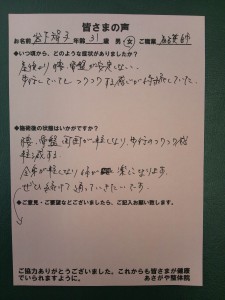 皆さまの声
お名前 宮下 子 年齢 31 歳 男・女 ご職業 師
◆いつ頃から、どのような症状がありましたか?
産後より腰、骨盤が安定しない。
歩行していてもコツコツする感じが持続していた。
◆施術後の状態はいかがですか?
腰、骨盤、周囲が軽くなり、歩行のコツコツ感
軽減する。
全身が軽くなり体が楽になります。
ぜひ続けて通っていきたいです。
◆ご意見・ご要望などございましたら、ご記入お願い致します。
ご協力ありがとうございました。これからも皆さまが健康
でいられますように。
あさがや整体院